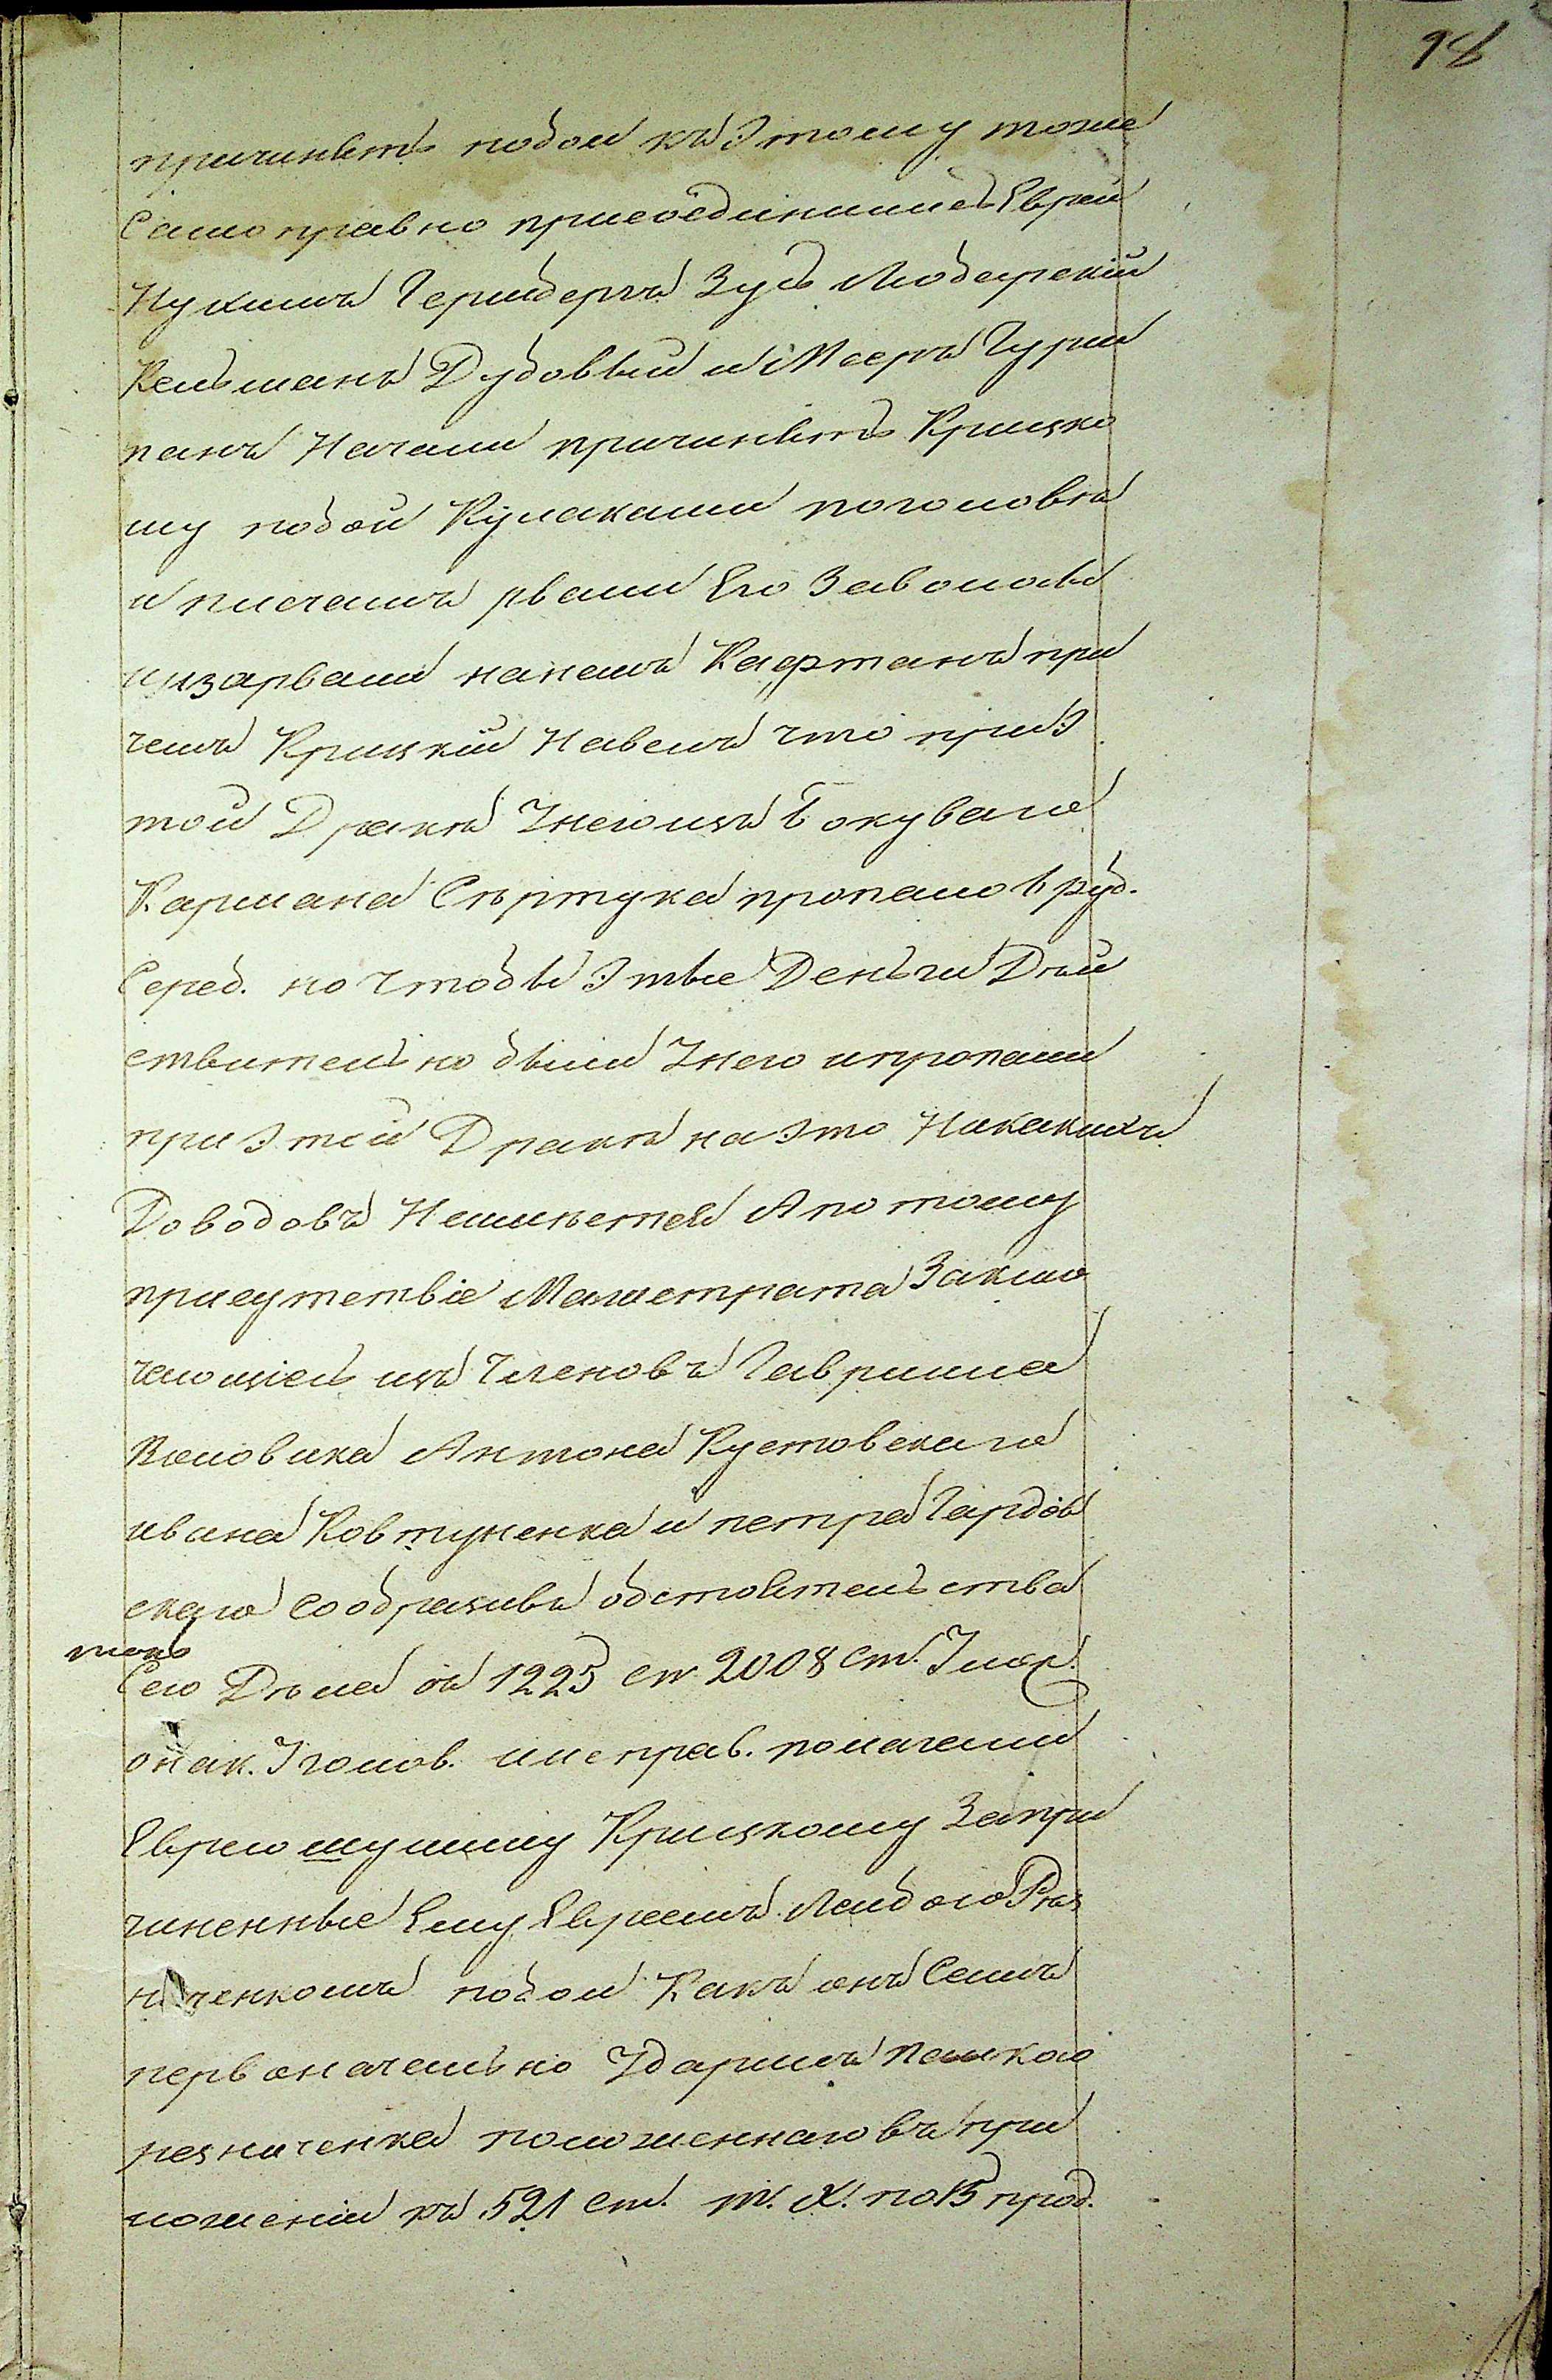 98
причинять побои къ Этому тоже
Самоправно присоединились Евреи
Нухимъ Гершберъ Зусь Любарскій
Кельманъ Дубовый и Мееръ Чури
панъ Начали причинять Крицко
му побои Кулаками поголовѣ
и плечамъ рвали Его Заволосы
изарвали нанемъ Кафтанъ при
чемъ Крицкій Навелъ что приЭ
той Дракѣ Унегоизъ Боковаго
Кармана Сѣртука пропало 6 руб.
Сереб. но Чтобы Этые Деньги Дѣй
ствительно были Унего ипропали
приЭтой Дракѣ наЭто Никакихъ
Доводовъ Неимѣется Апотому
присутствіе Магистрата Заклю
чающіесь изъ Членовъ Гаврила
Воловика Антона Кустовскаго
ивана Ковтуненка и петра Гардов
скаго Сообразивъ обстоятельства
Сего Дѣла съ 1225 ст 2008 ст. Улож.
онак. Уголов. иисправ. полагали
Еврею шулиму Крицкому Запри
чиненные Ему Евреемъ Лейбою Рѣз
ниченкомъ побои Какъ онъ Самъ
первоначально Ударилъ палкою
резниченка положеннаго въ при
ложеніи къ 521 ст. т. X. по 15 прод.